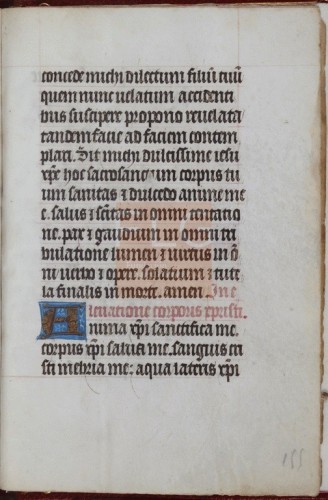 concede michi dilectum filiū tuū
quem nunc uelatum accidenti
bus suscipere propono reuelata
tandem facie ad faciem contem
plari. Sit michi dulcissime iesu
xp̄e hoc sacrosanctum corpus tu
um sanitas ⁊ dulcedo anime me
e. salus ⁊ sc̄itas in omni temtatio
ne. pax ⁊ gaudium in omni tri
bulatione lumen ⁊ uirtus in ō
ni uerbo ⁊ opere. solatium ⁊ tute
la finalis in morte. amen. In e
leuatione corporis xpristi.
Anima xp̄i sanctifica me.
corpus xp̄i salua me. sanguis cri
sti inebria me: aqua lateris xp̄i
155